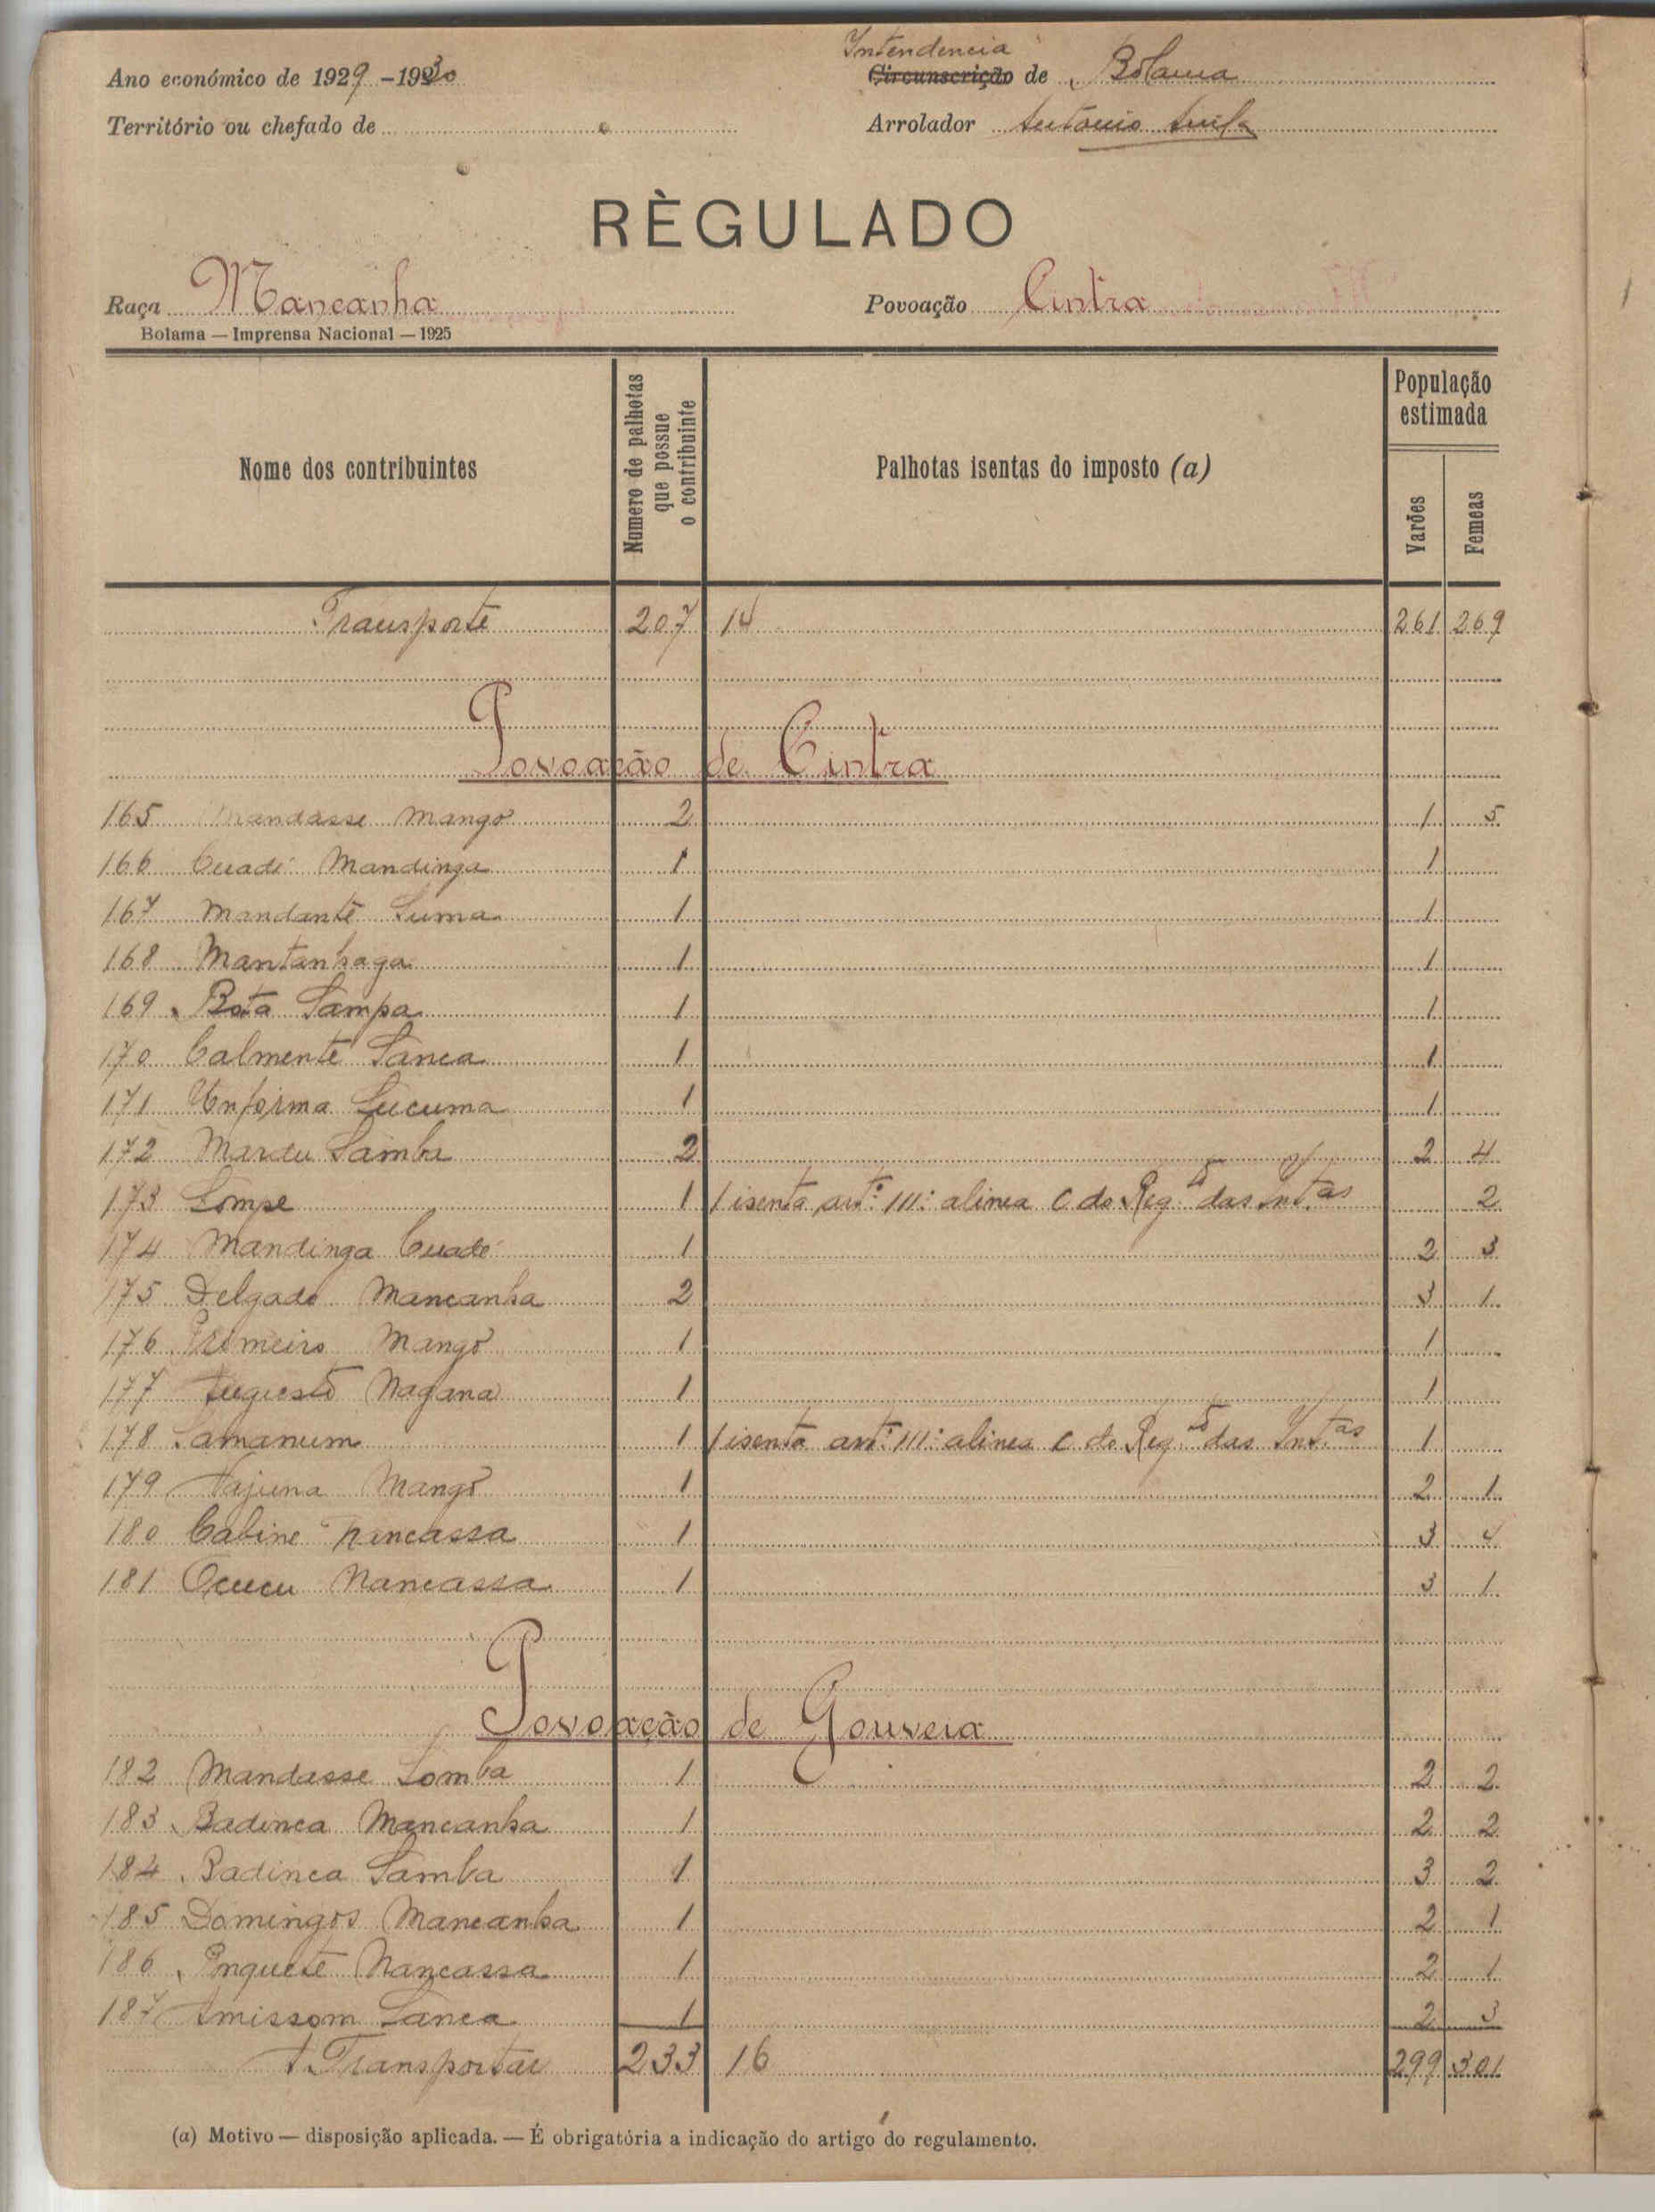 Ano económico de 1929-1930
Intendencia
Circunscrição de Bolama
Território ou chefado de
Arrolador Antonio
RÈGULADO
Raça Mancanha
Povoação Cintra
Bolama — Imprensa Nacional — 1925
Nome dos contribuintes
Numero de palhotas que possue o contribuinte
Palhotas isentas do imposto (a)
População estimada
Varões
Femeas
Transporte 207 14 261 269
Povoação de Cintra
165 Mandasse Mango 2 1 5
166 Cuadé Mandinga 1 1
167 Mandante Suma 1 1
168 Mantanhaga 1 1
169 Bota Sampa 1 1
170 Calmente Sanca 1 1
171 Unforma Lucuma 1 1
172 Mardu Samba 2 2 4
173 Lompe 1 1 isento artº 111º alinea C do Reg.to das Int.as 2
174 Mandinga Cuadé 1 2 3
175 Delgado Mancanha 2 3 1
176 Promeiro Mango 1 1
177 Augusto Nagana 1 1
178 Samanum 1 1 isento artº 111º alinea C do Reg.to das Int.as 1
179 Najuna Mango 1 2 1
180 Cabine Nancassa 1 3 4
181 Ocucu Nancassa 1 3 1
Povoação de Gouveia
182 Mandasse Lomba 1 2 2
183 Badinca Mancanha 1 2 2
184 Badinca Samba 1 3 2
185 Domingos Mancanha 1 2 1
186 Enquete Nancassa 1 2 1
187 Amissom Sanca 1 2 3
A Transportar 233 16 299 301
(a) Motivo — disposição aplicada. — É obrigatória a indicação do artigo do regulamento.